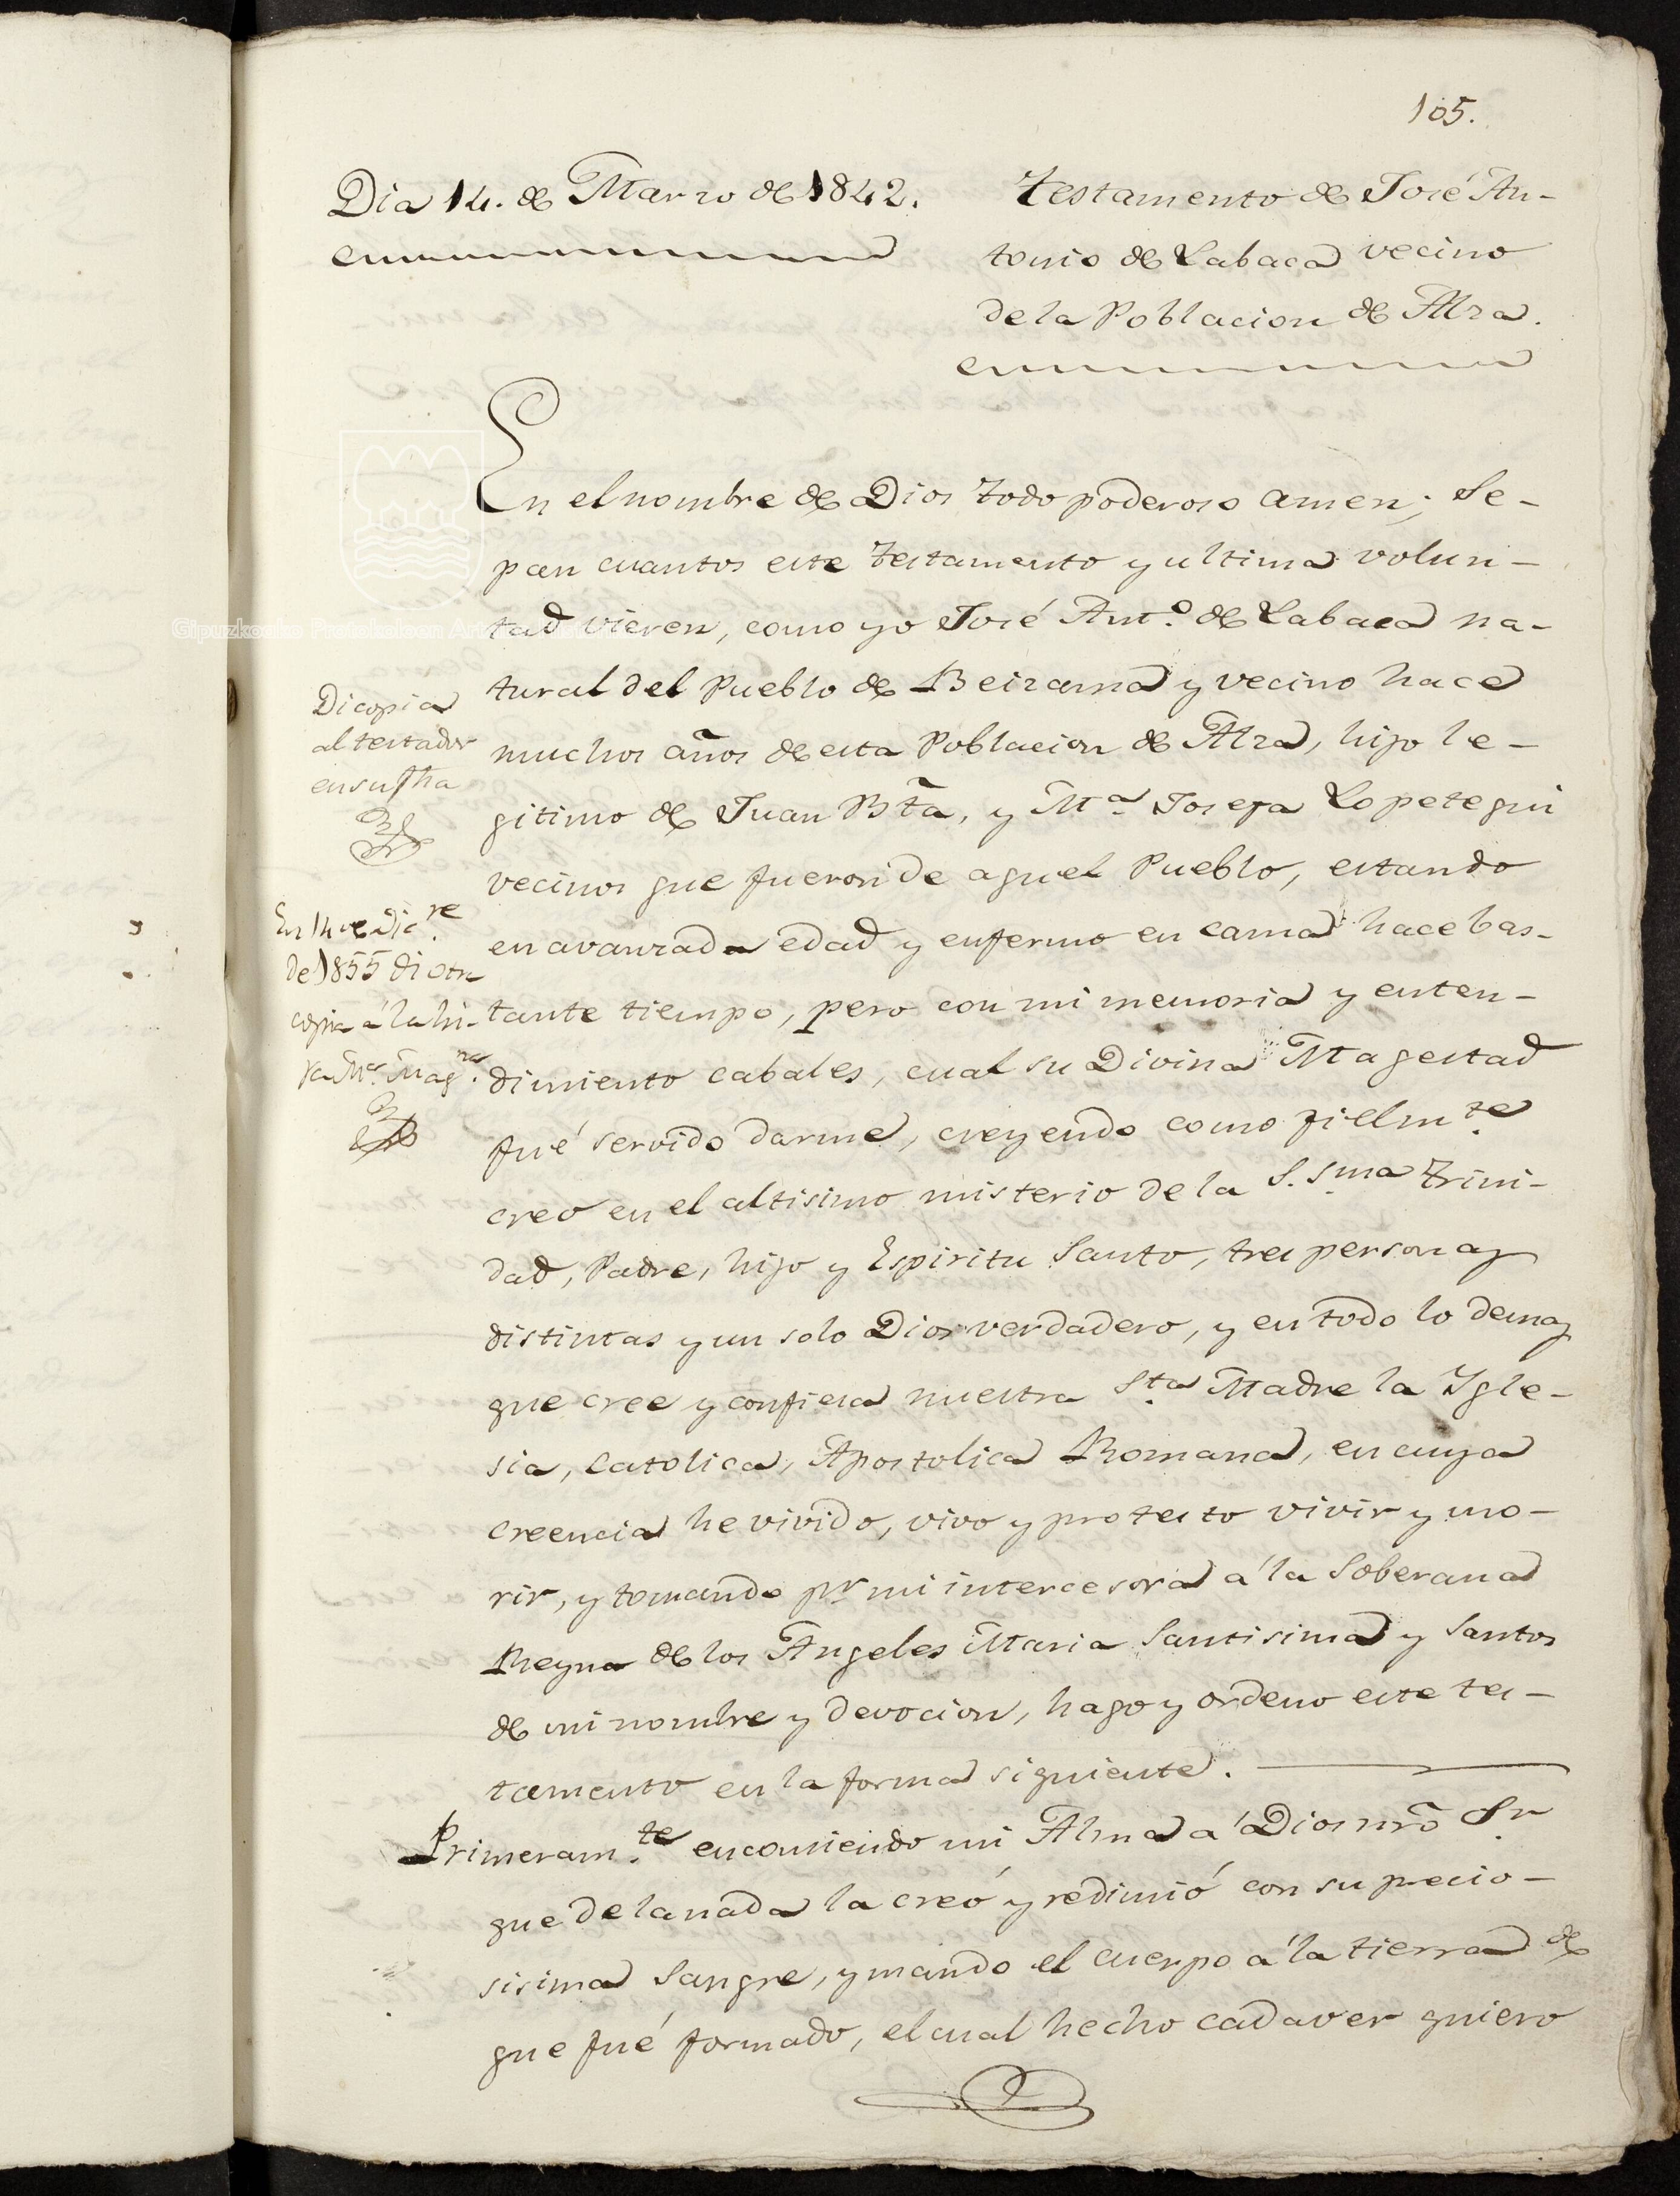 105.
Dia 14. de Marzo de 1842.
Testamento de José An-
tonio de Labaca vecino
de la Poblacion de Alza.
En el nombre de Dios todo poderoso amen; Se-
pan cuantos este testamento y ultima volun-
tad vieren, como yo José Ant.º de Labaca na-
tural del Pueblo de Beizama y vecino hace
muchos años de esta Poblacion de Alza, hijo le-
gitimo de Juan Bta, y Mª Josefa Lopetegui
vecinos que fueron de aquel Pueblo, estando
en avanzada edad y enfermo en cama hace bas-
tante tiempo, pero con mi memoria y enten-
dimiento cabales, cual su Divina Magestad
fué servido darme, creyendo como fielm.te
creo en el altisimo misterio de la S.Sma Trini-
dad, Padre, hijo y Espiritu Santo, tres personas
distintas y un solo Dios verdadero, y en todo lo demas
que cree y confiesa nuestra Sta Madre la Ygle-
sia, Catolica, Apostolica Romana, en cuya
creencia he vivido, vivo y protesto vivir y mo-
rir, y tomando pr mi intercesora á la Soberana
Reyna de los Angeles Maria Santisima y Santos
de mi nombre y devocion, hago y ordeno este tes-
tamento en la forma siguiente.
Primeram.te encomiendo mi Alma á Dios nrõ Sr
que de la nada la creó y redimió con su precio-
sisima Sangre, y mando el cuerpo á la tierra de
que fué formado, el cual hecho cadaver quiero
Di copia
al testador
en su fha
En 14 de Dic.re
de 1855 di otra
copia á la hi-
ja Mª Mag.na
Gipuzkoako Protokoloen